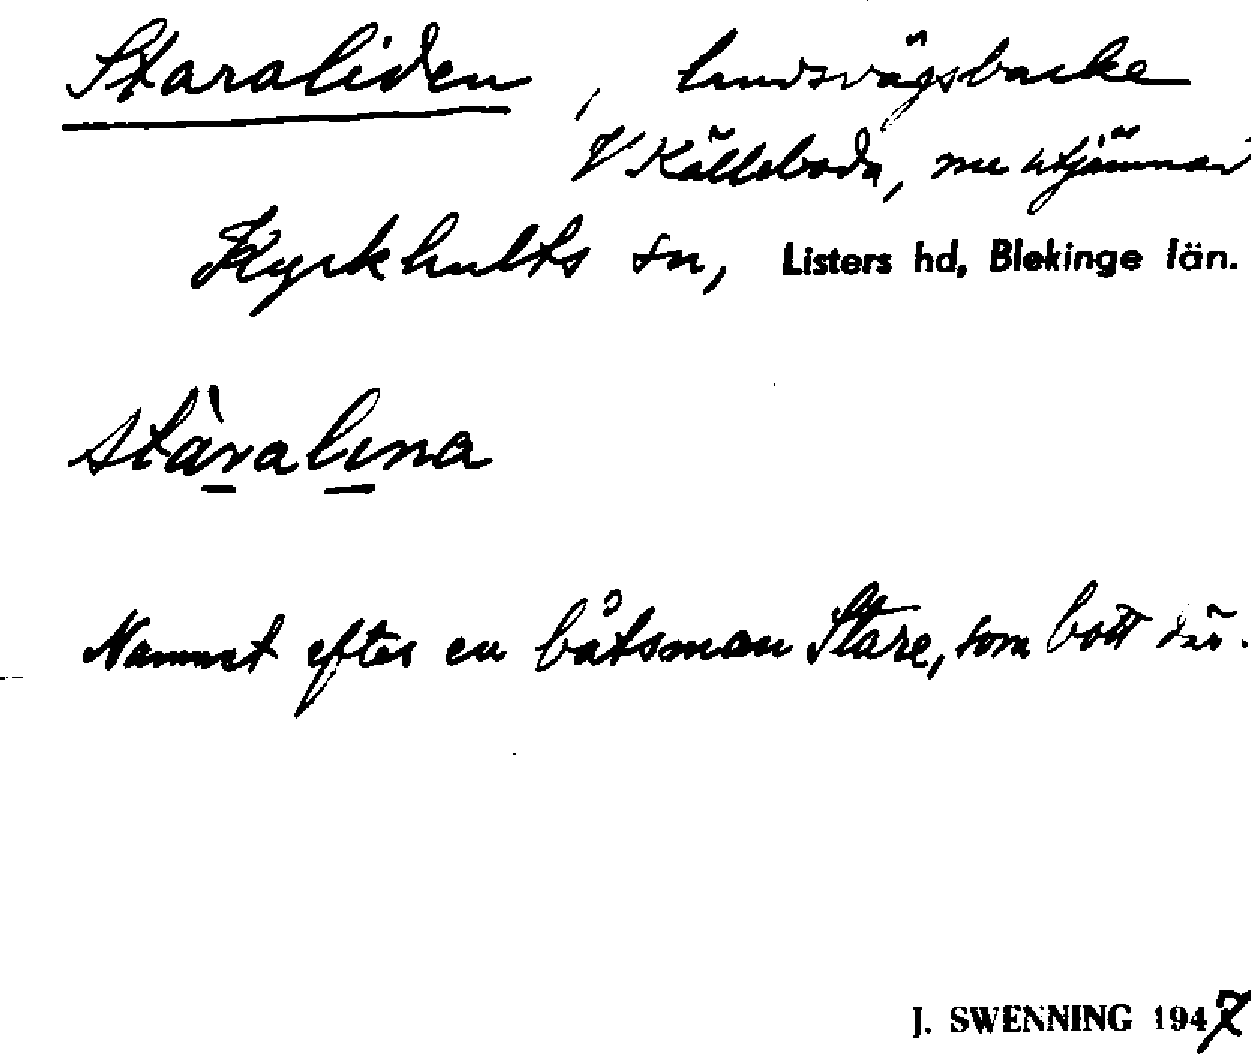 Staraliden, landsvägsbacke
V Källeboda, nu utjämnad
Kyrkhults sn, Listers hd, Blekinge län.
stàralına
Namnet efter en båtsman Stare, som bott där.
J. SWENNING 1947